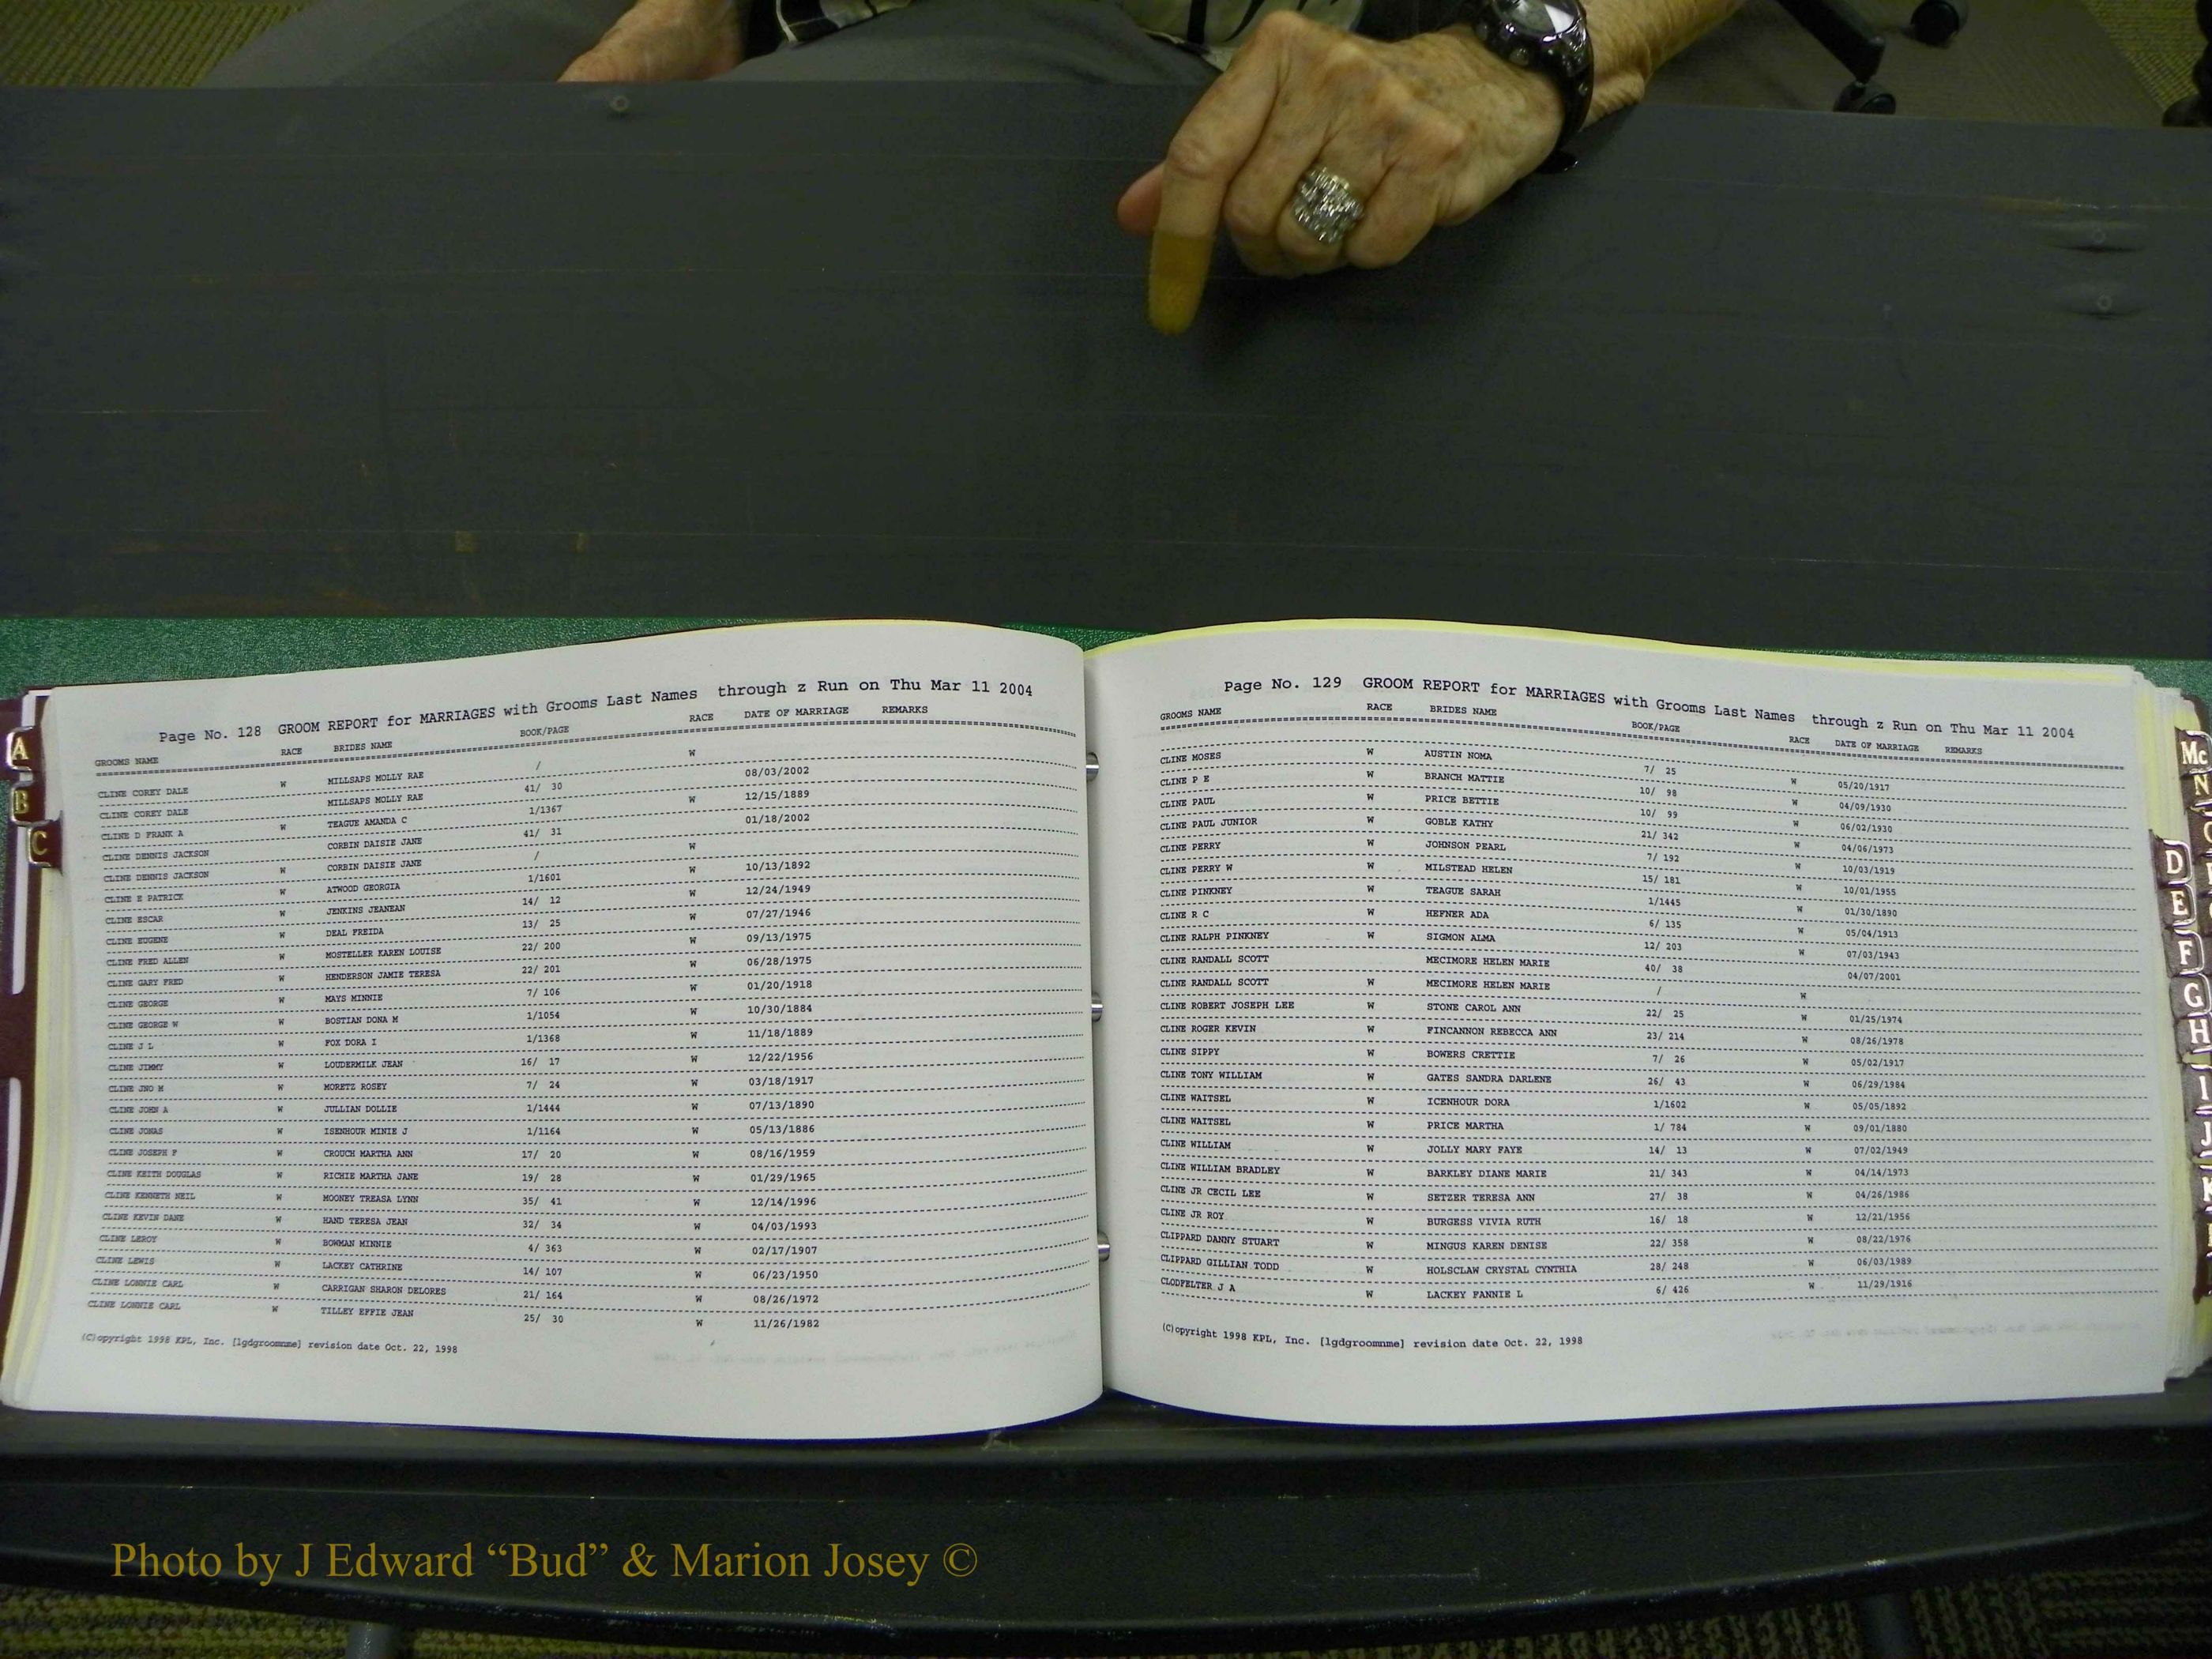 Page No. 128 GROOM REPORT for MARRIAGES with Grooms Last Names through z Run on Thu Mar 11 2004
GROOMS NAME RACE BRIDES NAME BOOK/PAGE RACE DATE OF MARRIAGE REMARKS
CLINE COREY DALE W MILLSAPS MOLLY RAE / W
CLINE COREY DALE MILLSAPS MOLLY RAE 41/ 30 08/03/2002
CLINE D FRANK A W TEAGUE AMANDA C 1/1367 W 12/15/1889
CLINE DENNIS JACKSON CORBIN DAISIE JANE 41/ 31 01/18/2002
CLINE DENNIS JACKSON W CORBIN DAISIE JANE / W
CLINE E PATRICK W ATWOOD GEORGIA 1/1601 W 10/13/1892
CLINE ESCAR W JENKINS JEANEAN 14/ 12 W 12/24/1949
CLINE EUGENE W DEAL FREIDA 13/ 25 W 07/27/1946
CLINE FRED ALLEN W MOSTELLER KAREN LOUISE 22/ 200 W 09/13/1975
CLINE GARY FRED W HENDERSON JAMIE TERESA 22/ 201 W 06/28/1975
CLINE GEORGE W MAYS MINNIE 7/ 106 W 01/20/1918
CLINE GEORGE W W BOSTIAN DONA M 1/1054 W 10/30/1884
CLINE J L W FOX DORA I 1/1368 W 11/18/1889
CLINE JIMMY W LOUDERMILK JEAN 16/ 17 W 12/22/1956
CLINE JNO M W MORETZ ROSEY 7/ 24 W 03/18/1917
CLINE JOHN A W JULLIAN DOLLIE 1/1444 W 07/13/1890
CLINE JONAS W ISENHOUR MINIE J 1/1164 W 05/13/1886
CLINE JOSEPH F W CROUCH MARTHA ANN 17/ 20 W 08/16/1959
CLINE KEITH DOUGLAS W RICHIE MARTHA JANE 19/ 28 W 01/29/1965
CLINE KENNETH NEIL W MOONEY TREASA LYNN 35/ 41 W 12/14/1996
CLINE KEVIN DANE W HAND TERESA JEAN 32/ 34 W 04/03/1993
CLINE LEROY W BOWMAN MINNIE 4/ 363 W 02/17/1907
CLINE LEWIS W LACKEY CATHRINE 14/ 107 W 06/23/1950
CLINE LONNIE CARL W CARRIGAN SHARON DELORES 21/ 164 W 08/26/1972
CLINE LONNIE CARL W TILLEY EFFIE JEAN 25/ 30 W 11/26/1982
(C)opyright 1998 KPL, Inc. [lgdgroomnme] revision date Oct. 22, 1998
A
B
C
Page No. 129 GROOM REPORT for MARRIAGES with Grooms Last Names through z Run on Thu Mar 11 2004
GROOMS NAME RACE BRIDES NAME BOOK/PAGE RACE DATE OF MARRIAGE REMARKS
CLINE MOSES W AUSTIN NOMA 7/ 25 W 05/20/1917
CLINE P E W BRANCH MATTIE 10/ 98 W 04/09/1930
CLINE PAUL W PRICE BETTIE 10/ 99 W 06/02/1930
CLINE PAUL JUNIOR W GOBLE KATHY 21/ 342 W 04/06/1973
CLINE PERRY W JOHNSON PEARL 7/ 192 W 10/03/1919
CLINE PERRY W W MILSTEAD HELEN 15/ 181 W 10/01/1955
CLINE PINKNEY W TEAGUE SARAH 1/1445 W 01/30/1890
CLINE R C W HEFNER ADA 6/ 135 W 05/04/1913
CLINE RALPH PINKNEY W SIGMON ALMA 12/ 203 W 07/03/1943
CLINE RANDALL SCOTT MECIMORE HELEN MARIE 40/ 38 04/07/2001
CLINE RANDALL SCOTT W MECIMORE HELEN MARIE / W
CLINE ROBERT JOSEPH LEE W STONE CAROL ANN 22/ 25 W 01/25/1974
CLINE ROGER KEVIN W FINCANNON REBECCA ANN 23/ 214 W 08/26/1978
CLINE SIPPY W BOWERS CRETTIE 7/ 26 W 05/02/1917
CLINE TONY WILLIAM W GATES SANDRA DARLENE 26/ 43 W 06/29/1984
CLINE WAITSEL W ICENHOUR DORA 1/1602 W 05/05/1892
CLINE WAITSEL W PRICE MARTHA 1/ 784 W 09/01/1880
CLINE WILLIAM W JOLLY MARY FAYE 14/ 13 W 07/02/1949
CLINE WILLIAM BRADLEY W BARKLEY DIANE MARIE 21/ 343 W 04/14/1973
CLINE JR CECIL LEE W SETZER TERESA ANN 27/ 38 W 04/26/1986
CLINE JR ROY W BURGESS VIVIA RUTH 16/ 18 W 12/21/1956
CLIPPARD DANNY STUART W MINGUS KAREN DENISE 22/ 358 W 08/22/1976
CLIPPARD GILLIAN TODD W HOLSCLAW CRYSTAL CYNTHIA 28/ 248 W 06/03/1989
CLODFELTER J A W LACKEY FANNIE L 6/ 426 W 11/29/1916
(C)opyright 1998 KPL, Inc. [lgdgroomnme] revision date Oct. 22, 1998
D
E
F
G
H
I
J
K
Mc
N
Photo by J Edward “Bud” & Marion Josey ©